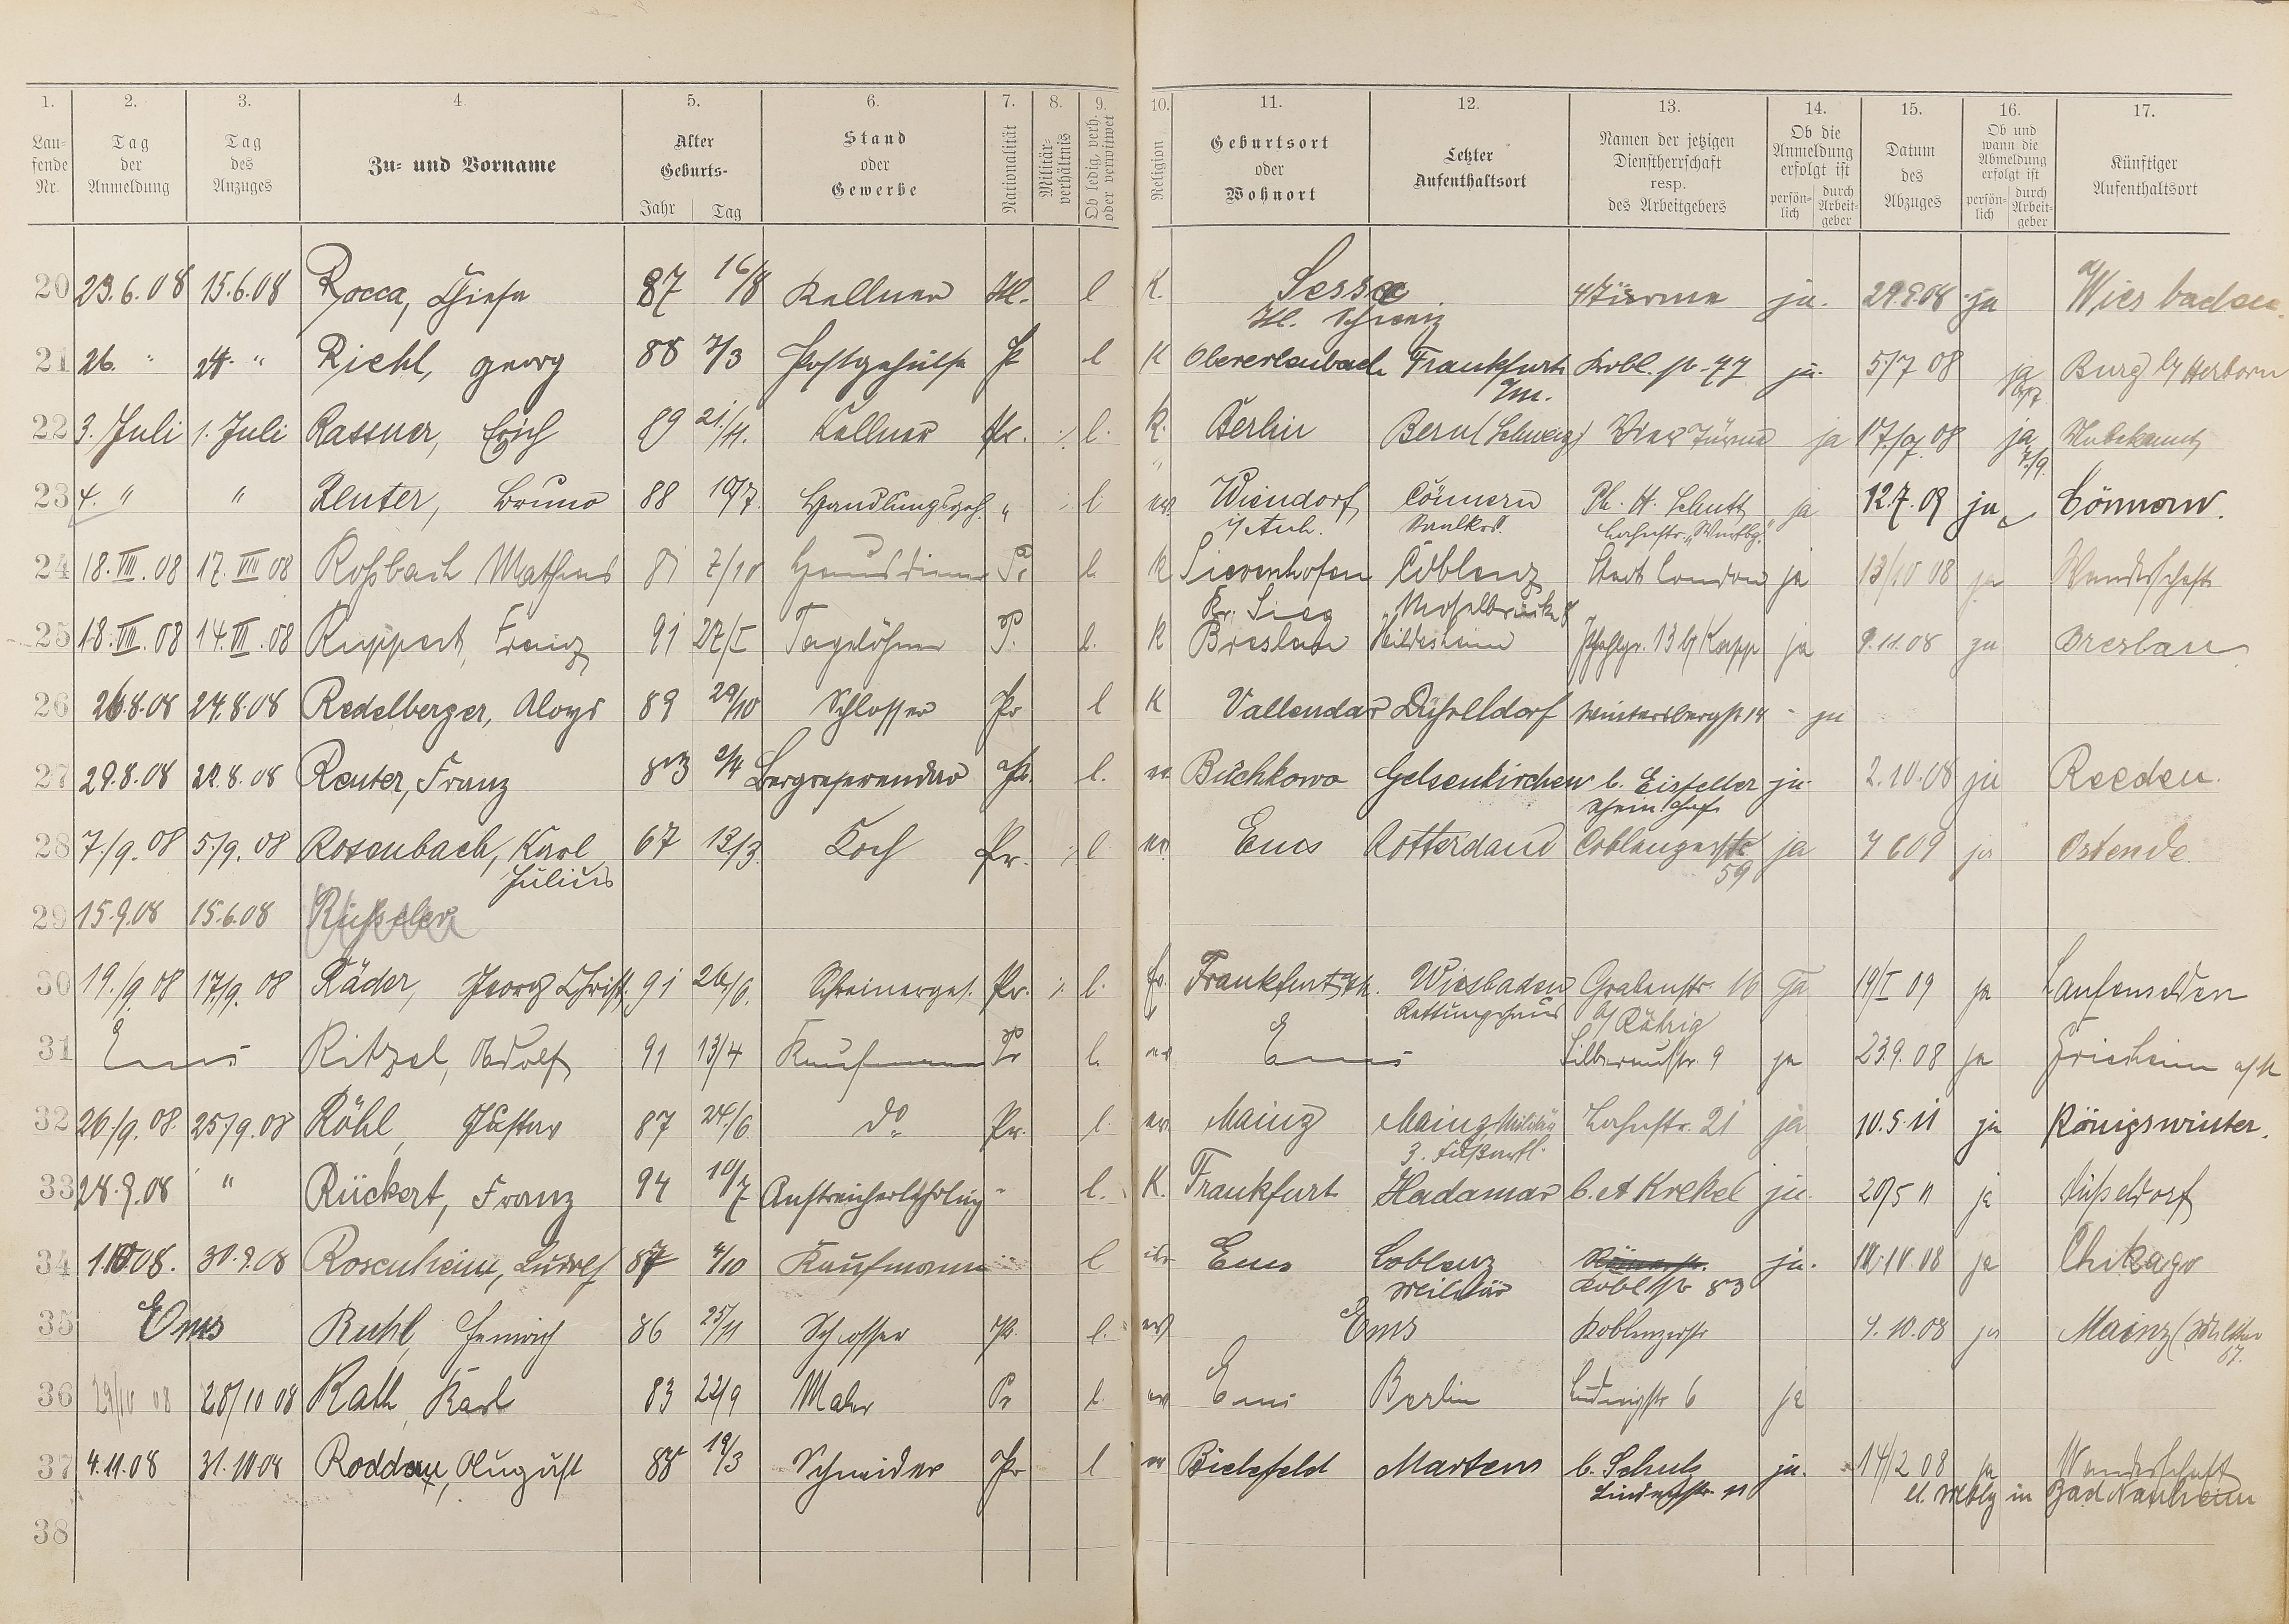 1. 2. 3. 4. 5. 6. 7. 8. 9. 10. 11. 12. 13. 14. 15. 16. 17.
Lau-fende Nr. Tag der Anmeldung Tag des Anzuges Zu- und Vorname Alter Geburts- Jahr Tag Stand oder Gewerbe Nationalität Militär-verhältnis Ob ledig, verh. oder verwitwet Religion Geburtsort oder Wohnort Letzter Aufenthaltsort Namen der jetzigen Dienstherrschaft resp. des Arbeitgebers Ob die Anmeldung erfolgt ist persön-lich durch Arbeit-geber Datum des Abzuges Ob und wann die Abmeldung erfolgt ist persön-lich durch Arbeit-geber Künftiger Aufenthaltsort
20 23.6.08 15.6.08 Rocca, 87 16/8 Kellner l K. Sessa 4 Türme ja. 29.8.08 ja Wiesbaden.
Schweiz
21 26. " 24. " Riehl, Georg 88 7/3 Postgehülfe Pr l K Obererlenbach Frankfurt Kobl. str. 77 ja. 5/7 08 ja Burg b/ Herborn
a/m.
22 3. Juli 1. Juli Rassner, Erich 89 21./11. Kellner Pr. ./. l. K. Berlin Bern (Schweiz) Vier Türme ja 17./9.08 ja Unbekannt
7/9.
23 4. " " Reuter, Bruno 88 10/7. Handlungsgeh. " l ev. Wiendorf Cönnern Ph. H. Schutt ja 12.7.09 ja Cönnern.
i/Anh. Saalkrs. Lahnstr.
24 18.VIII.08 17.VIII 08 Roßbach Mathias 81 7/10 Hausdiener Pr l. K Cöblenz Stadt London ja 13/10 08 ja Wanderschaft
Kr. Sieg Moselbrücke 8
25 18.VIII.08 14.VIII.08 Ruppert, Franz 91 27/I Tagelöhner P. l. K Breslau Hildesheim Pfahlgr. 13 b/ Kapp ja 9.11.08 ja Breslau
26 26.8.08 24.8.08 Redelberger, Aloys 89 29/10 Schlosser Pr l K Vallendar Düsseldorf Wintersbergstr 14 - ja
27 29.8.08 22.8.08 Reuter, Franz 83 2/4 Bergreferendar Pr. l. ev. Buchkowo Gelsenkirchen b. Eisfeller ja. 2.10.08 ja Reeden.
28 7./9.08 5./9.08 Rosenbach, Karl 67 13/3 Koch Pr. ./. l ev. Ems Rotterdam Coblenzerstr ja 7 6 09 ja Ostende
Julius 59
29 15.9.08 15.6.08
30 19./9 08 17./9.08 Räder, Georg Christ. 91 26./6. Schreinerges. Pr. ./. l. Frankfurt a/M. Wiesbaden Grabenstr. 16 Ja 19/I 09 ja Laufenselden
Rettungshaus b/ Röhrig
31 Ems Ritzel, Adolf 91 13/4 Kaufmann Pr l. ev Ems Silberaustr. 9 ja 23.9.08 ja Griesheim a/M
32 26/9.08. 25/9.08 Röhl, Gustav 87 24./6 do Pr. l. ev. Mainz Mainz Militär Lahnstr. 21 ja 10.5.11 ja Königswinter.
3. Fußartl.
33 28.9.08 " Rückert, Franz 94 10/7 Anstreicherlehrling - l. K. Frankfurt Hadamar b. A Krekel ja. 20/5 11 ja Düsseldorf
34 1.10 08. 30.9.08 Rosenheim, Ludolf 87 4/10 Kaufmann l isr Ems Coblenz ja. 10.10.08 ja Chikago
Militär Koblstr 83
35 Ems Ruhl, Heinrich 86 25/11 Schlosser Pr. l. ev Ems Koblenzerstr 7.10.08 ja Mainz (Militär
67.
36 29/10 08 28/10 08 Rath, Karl 83 22/9 Maler Pr l. ev Ems Berlin Ludwigstr 6 ja
37 4.11.08 31.10 08 Roddau, August 88 19/3 Schneider Pr l ev Bielefeld Martens b. Schulz ja. 14/12 08 ja Wanderschaft
Lindenstr. 11 lt. Mtlg in Bad Nauheim
38